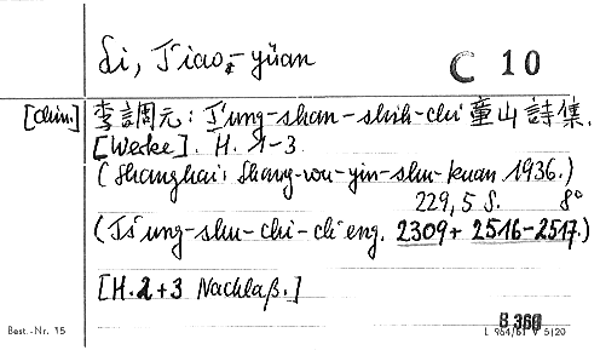 Li, T'iao-yüan
C 10
[chin.] 李調元: T'ung-shan-shih-chi 童山詩集.
[Werke]. H. 1-3.
(Shanghai: Shang-wu-yin-shu-kuan 1936.)
229, 5 S. 8°
(Ts'ung-shu-chi-ch'eng. 2309+ 2516-2517.)
[H. 2+3 Nachlaß.]
B 360
Best.-Nr. 15